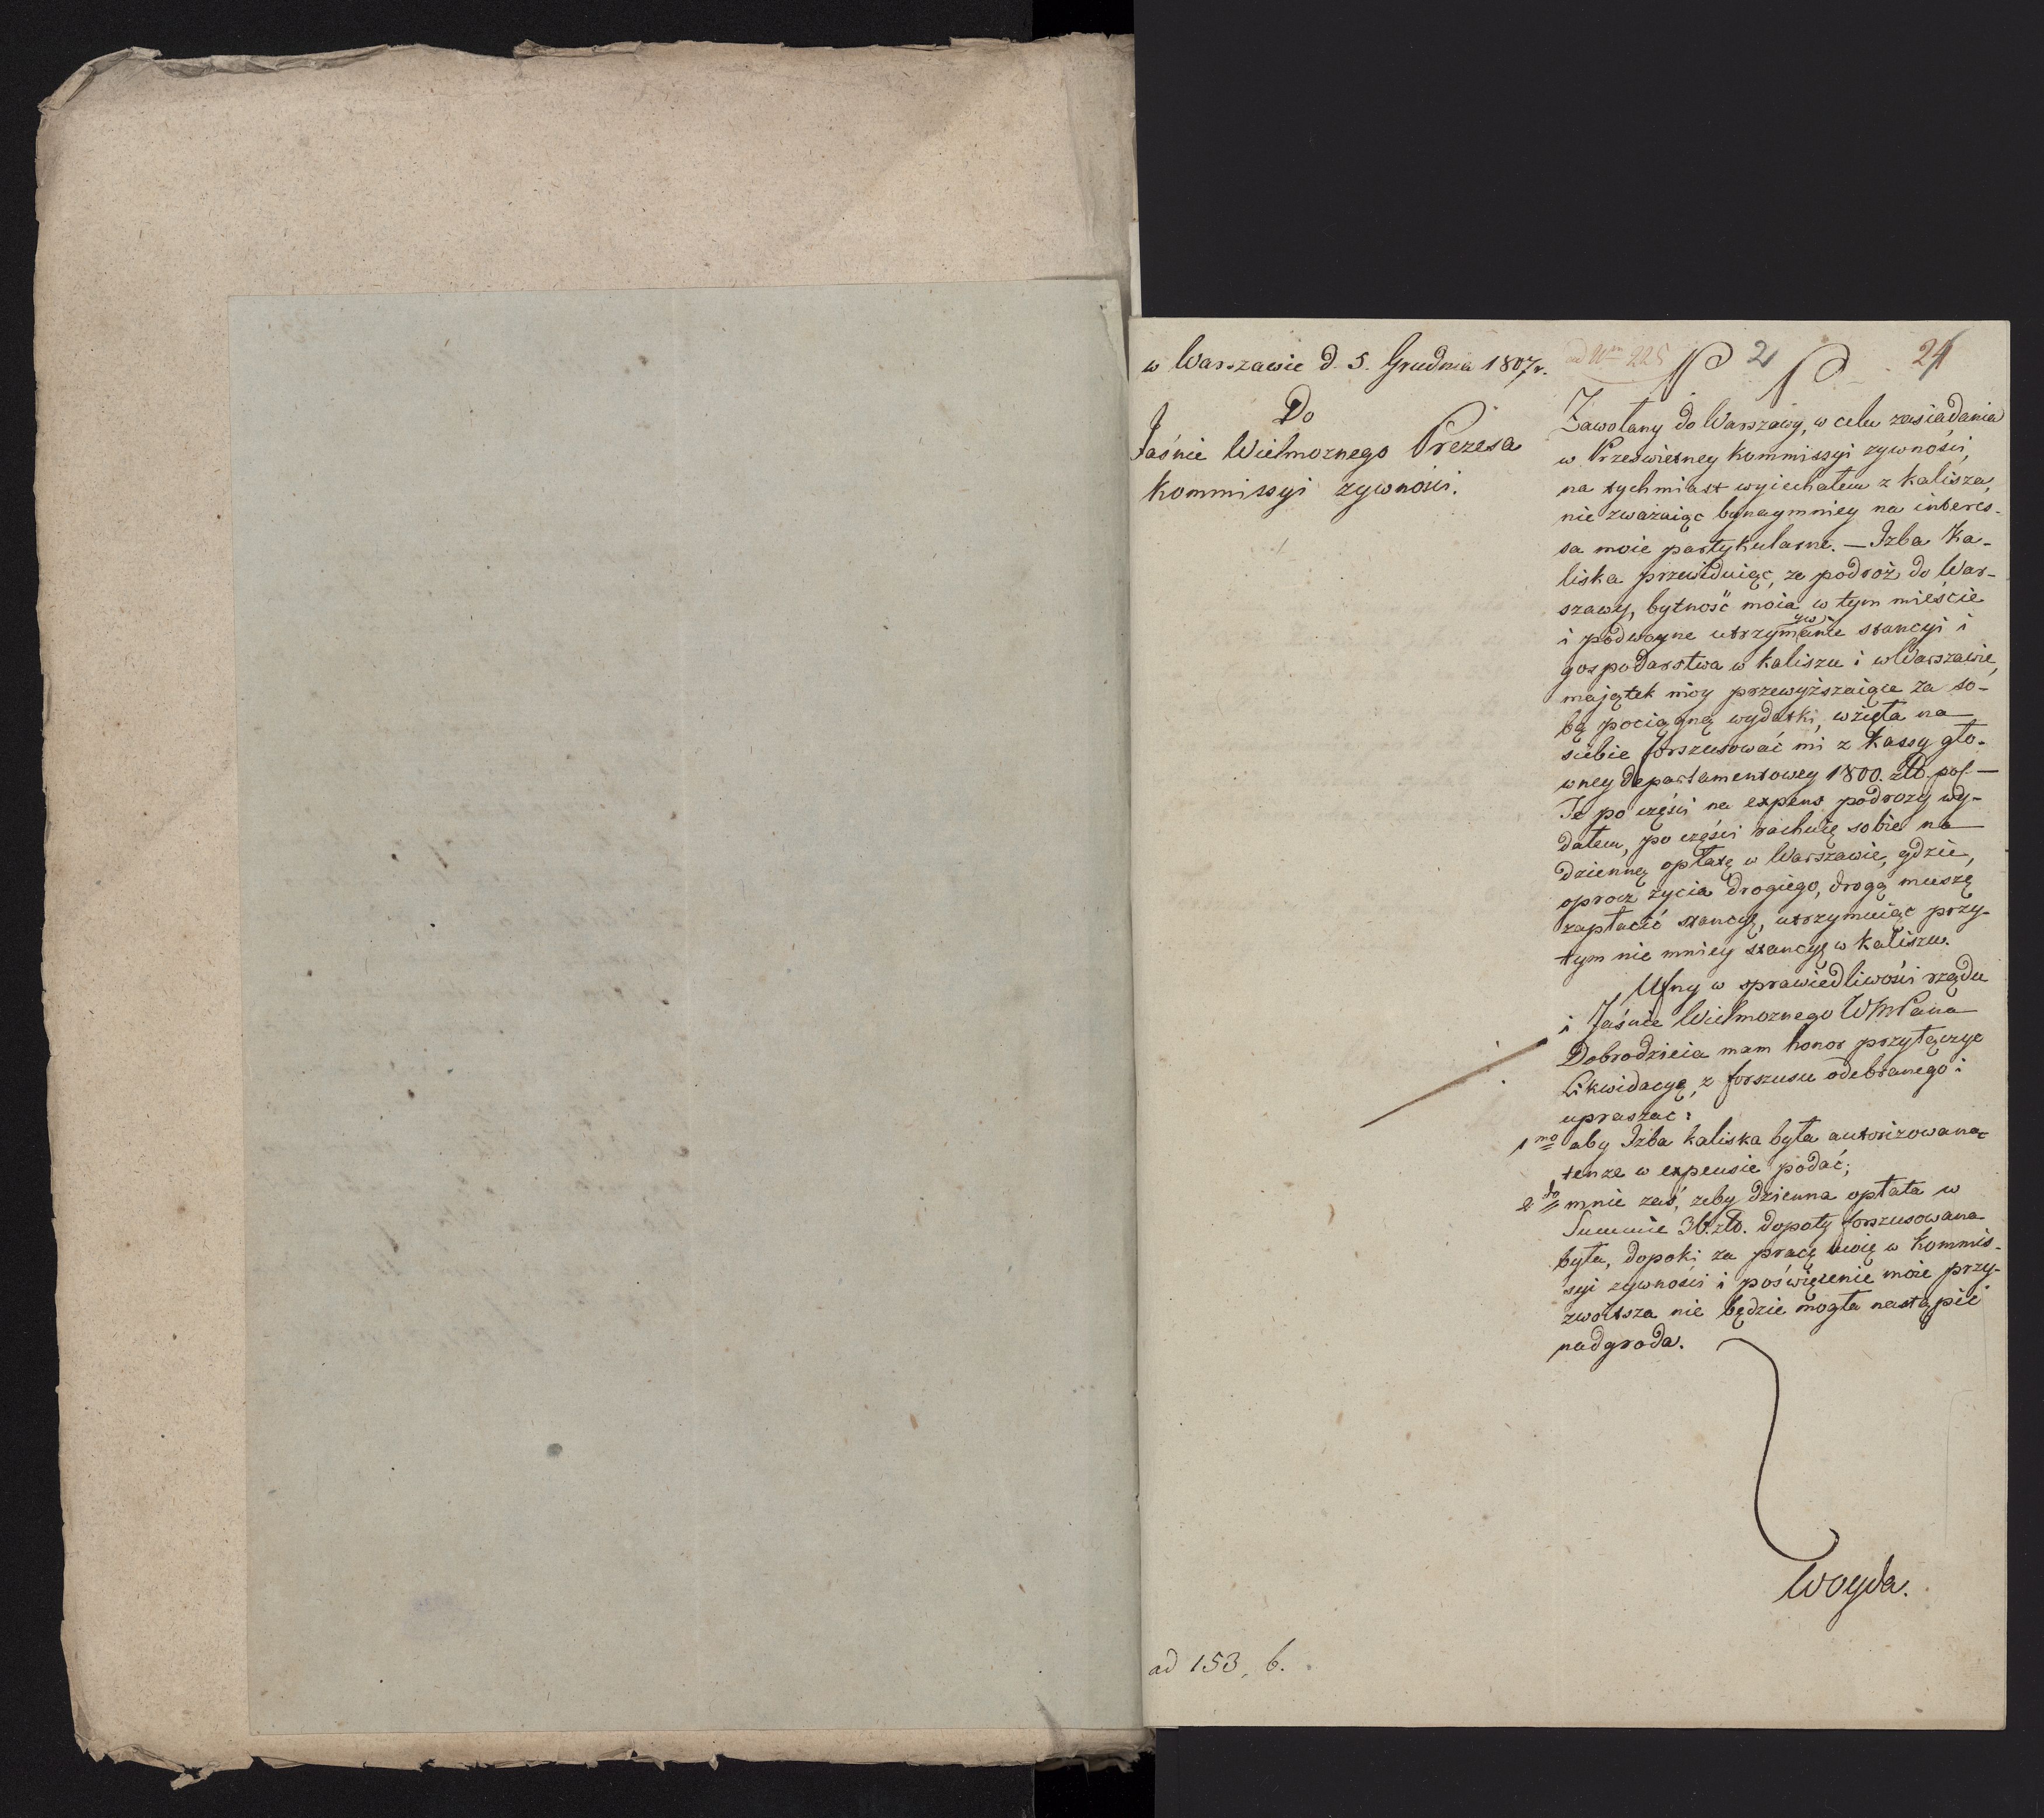 w Warszawie d. 5. Grudnia 1807r.
ad Nm 225
2
24
Do
Jaśnie Wielmoznego Prezesa
Kommissyi zywności.
Zawołany do Warszawy, w celu zasiadania
w Prześwietney Kommissyi zywności,
na tychmiast wyiechałem z Kalisza,
nie zważaiąc bynaymniey na interes-
sa moie partykularne. — Izba Ka-
liska przewiduiąc, ze podroż do War-
szawy, bytność moia w tym mieście
i podwoyne utrzymanie stancyi i
gospodarstwa w Kaliszu i w Warszawie,
majątek moy przewyższaiące za so-
bą pociągną wydatki, wzięła na
siebie forszusować mi z Kassy gło-
wney departamentowey 1800. złt. pol. —
Te po części na expens podrozy wy-
dałem, po części rachuię sobie na
dzienną opłatę w Warszawie, gdzie,
oprocz zycia drogiego, drogą muszę
zapłacić stancyę, utrzymuiąc przy-
tym nie mniey stancyę w Kaliszu.
Ufny w sprawiedliwości rządu
i Jaśnie Wielmoznego WMPana
Dobrodzieia mam honor przyłączyc
Likwidacyę z forszusu odebranego i
upraszac:
1mo aby Izba kaliska była autorizowana
tenze w expensie podać;
2do mnie zaś, zeby dzienna opłata w
Summie 36. złt. dopoty forszusowana
była, dopoki za pracę moię w Kommis-
syi zywności i poświęcenie moie przy-
zwoitsza nie będzie mogła nastąpić
nadgroda.
Woyda.
ad 153, 6.